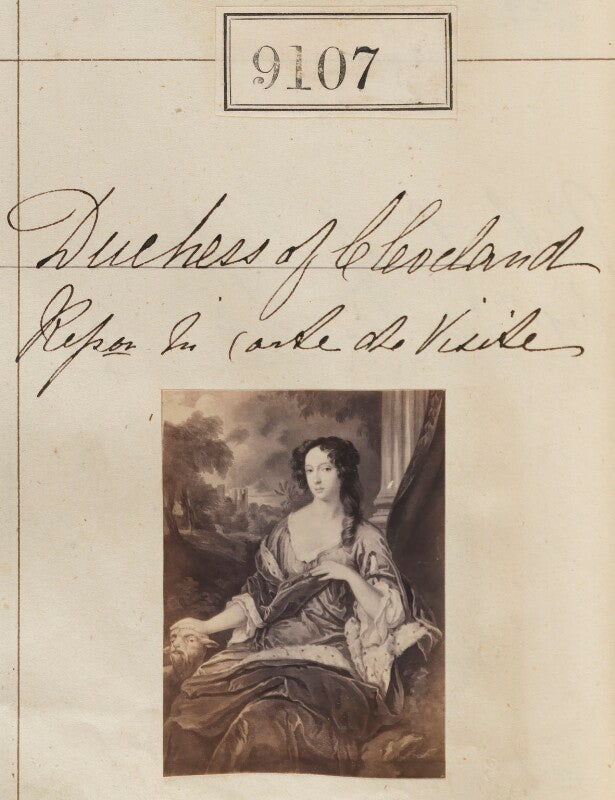 9107
Duchess of Cleveland
Repon in Carte de Visite